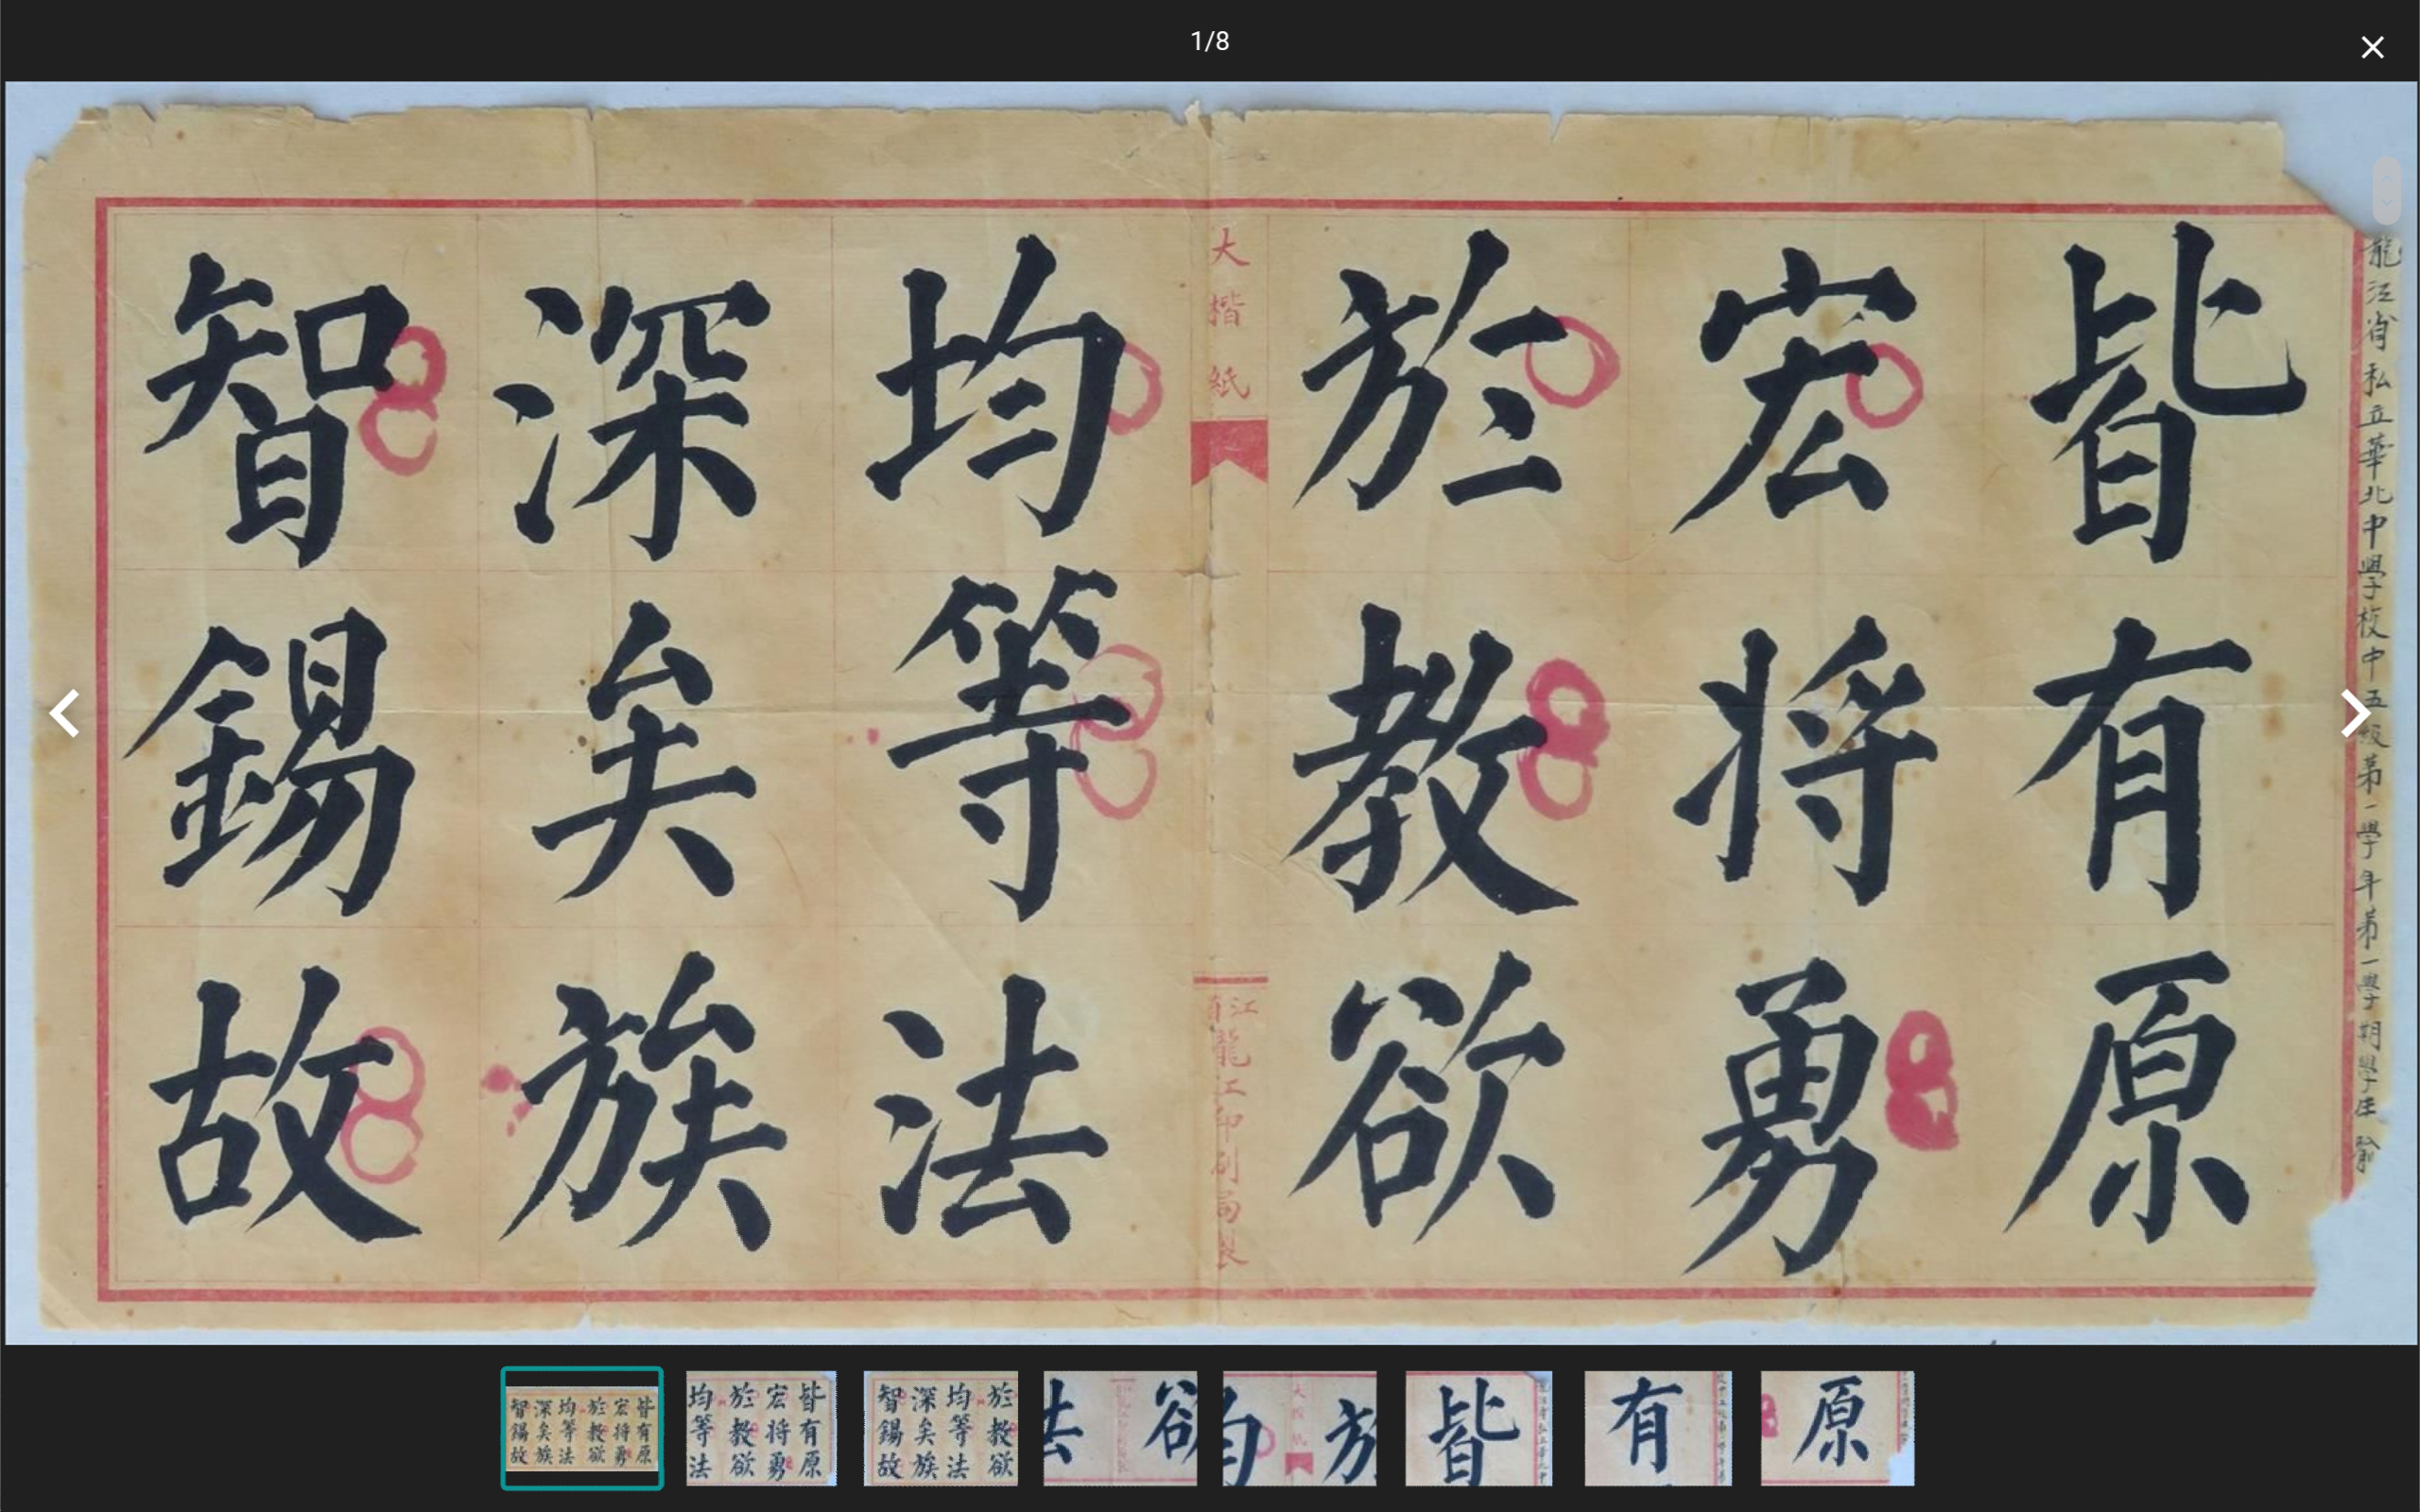 1/8
龍江省私立華北中學校中五級第一學年第一學期學生
皆有原
宏将勇
於教欲
大楷紙
江省龍江印刷局製
均等法
深矣族
智錫故